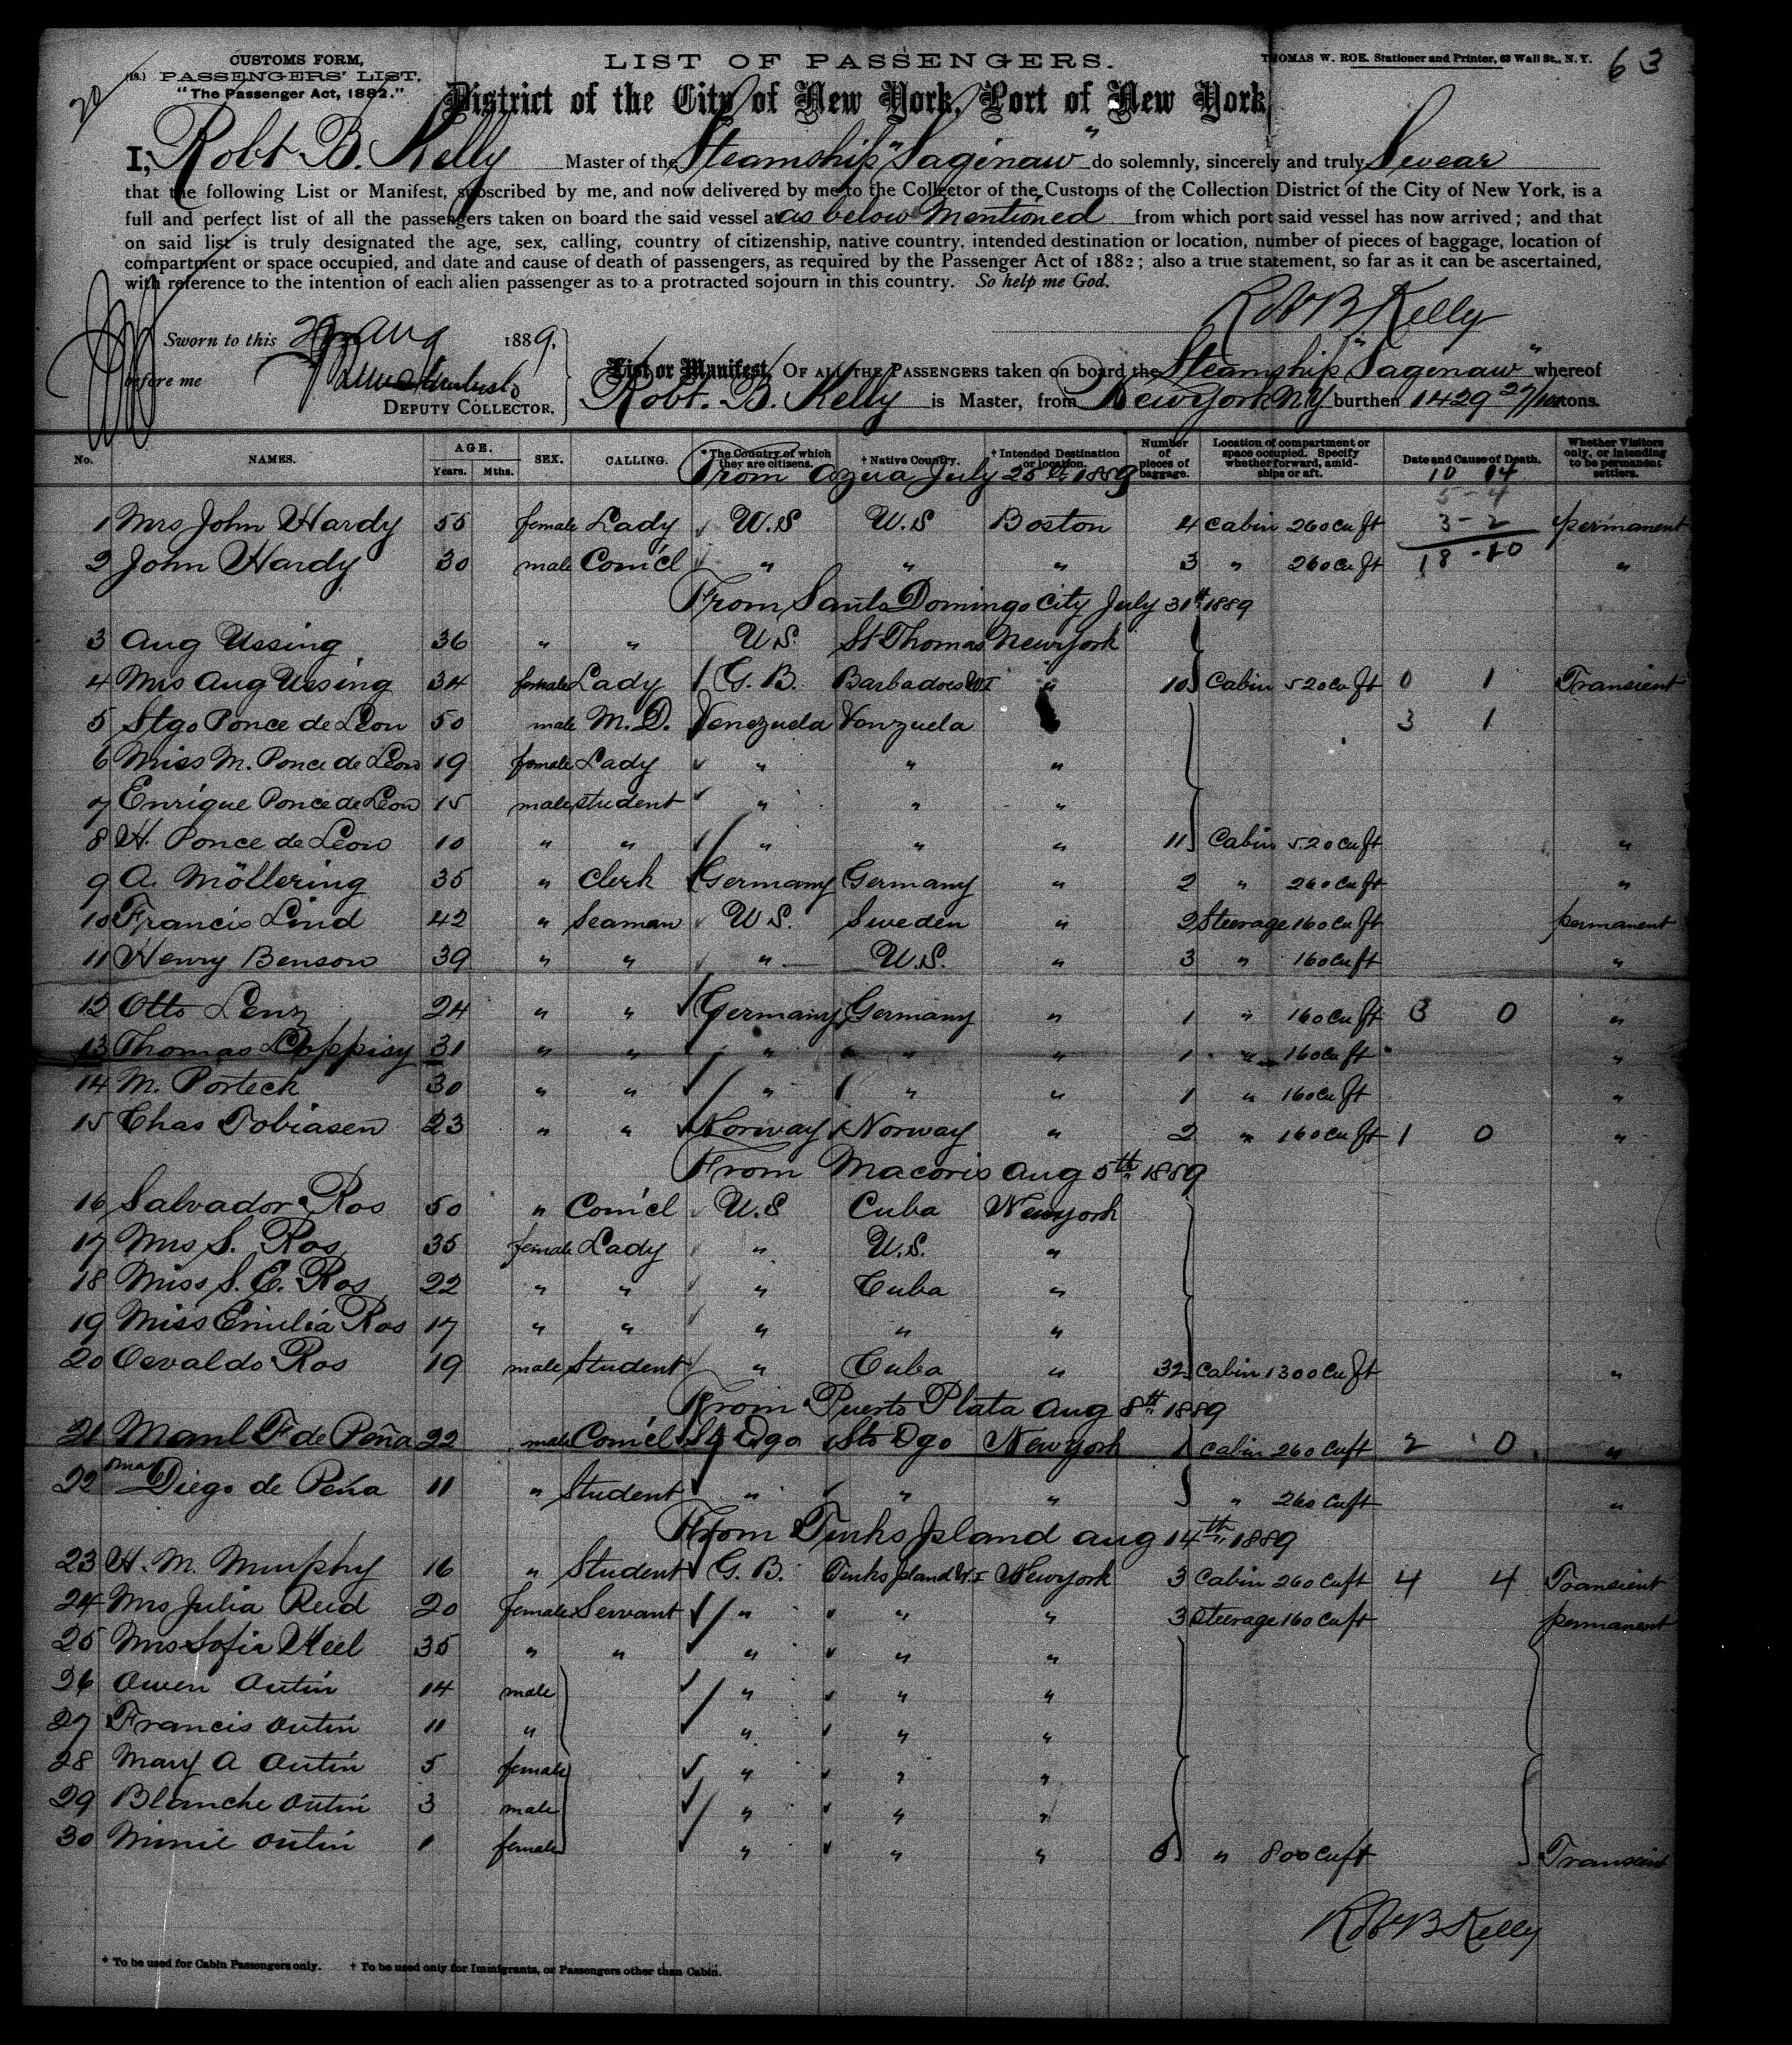 CUSTOMS FORM,
(18.) PASSENGERS' LIST,
"The Passenger Act, 1882."
LIST OF PASSENGERS.
THOMAS W. ROE, Stationer and Printer, 63 Wall St., N. Y.
63
20
District of the City of New York, Port of New York
I, Robt B. Kelly Master of the Steamship "Saginaw" do solemnly, sincerely and truly Swear
that the following List or Manifest, subscribed by me, and now delivered by me to the Collector of the Customs of the Collection District of the City of New York, is a
full and perfect list of all the passengers taken on board the said vessel at as below Mentioned from which port said vessel has now arrived; and that
on said list is truly designated the age, sex, calling, country of citizenship, native country, intended destination or location, number of pieces of baggage, location of
compartment or space occupied, and date and cause of death of passengers, as required by the Passenger Act of 1882; also a true statement, so far as it can be ascertained,
with reference to the intention of each alien passenger as to a protracted sojourn in this country. So help me God.
Robt B Kelly
Sworn to this Aug 1889,
before me
DEPUTY COLLECTOR.
List or Manifest, OF ALL THE PASSENGERS taken on board the Steamship "Saginaw" whereof
Robt. B. Kelly is Master, from New York NY burthen 1429 27/100 tons.
No. NAMES. AGE. Years. Mths. SEX. CALLING. * The Country of which they are citizens. † Native Country. † Intended Destination or location. Number of pieces of baggage. Location of compartment or space occupied. Specify whether forward, amidships or aft. Date and Cause of Death. Whether Visitors only, or intending to be permanent settlers.
From Azua July 25th 1889 10 14
5 - 4
1 Mrs John Hardy 55 female Lady W.S W.S Boston 4 cabin 260 cu ft 3 - 2 permanent
2 John Hardy 30 male Com'cl " " " 3 " 260 cu ft 18 - 20 "
From Santo Domingo City July 31st 1889
3 Aug Ussing 36 " " U.S. St Thomas New York
4 Mrs Aug Ussing 34 female Lady G. B. Barbadoes W I " 10 Cabin 520 cu ft 0 1 Transient
5 Stgo Ponce de Leon 50 male M. D. Venezuela Venzuela 3 1
6 Miss M. Ponce de Leon 19 female Lady " " "
7 Enrique Ponce de Leon 15 male student " " "
8 H. Ponce de Leon 10 " " " " " 11 Cabin 520 cu ft "
9 A. Möllering 35 " Clerk Germany Germany " 2 " 260 cu ft "
10 Francis Lind 42 " Seaman U.S. Sweden " 2 Steerage 160 cu ft permanent
11 Henry Benson 39 " " " U.S. " 3 " 160 cu ft "
12 Otto Lenz 24 " " Germany Germany " 1 " 160 cu ft 3 0 "
13 Thomas 31 " " " " " 1 " 160 cu ft "
14 M. Porteck 30 " " " " " 1 " 160 cu ft "
15 Chas Tobiasen 23 " " Norway Norway " 2 " 160 cu ft 1 0 "
From Macoris Aug 5th 1889
16 Salvador Ros 50 " Com'cl U.S Cuba New York
17 Mrs S. Ros 35 female Lady " U.S. "
18 Miss S. C. Ros 22 " " " Cuba "
19 Miss Emilia Ros 17 " " " " "
20 Osvaldo Ros 19 male Student " Cuba " 32 cabin 1300 cu ft "
From Puerto Plata Aug 8th 1889
21 Manl F. de Peña 22 male Com'cl Sto Dgo Sto Dgo New York 1 cabin 260 cu ft 2 0 "
22 Diego de Peña 11 " Student " " " " 260 cu ft "
From Turks Island Aug 14th 1889
23 H. M. Murphy 16 " Student G. B. Turks Island W. I New York 3 Cabin 260 cu ft 4 4 Transient
24 Mrs Julia Reid 20 female Servant " " " 3 steerage 160 cu ft permanent
25 Mrs Sofia 35 " " " " "
26 Owen Outin 14 male " " "
27 Francis Outin 11 " " " "
28 Mary A Outin 5 female " " "
29 Blanche Outin 3 male " " "
30 Minie Outin 1 female " " " 6 " 800 cu ft Transient
Robt B Kelly
* To be used for Cabin Passengers only. † To be used only for Immigrants, or Passengers other than Cabin.